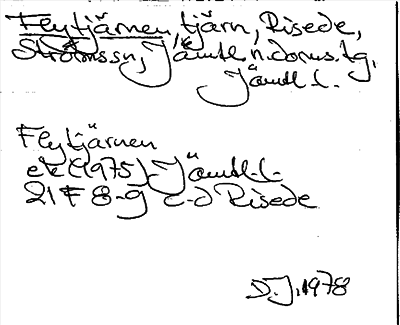 Flytjärnen, tjärn, Risede,
Ströms sn, Jämtl. n. doms. tg,
Jämtl. l.
Flytjärnen
ek (1975) Jämtl. l.
21 F 8-9 c-d Risede
D.J. 1978